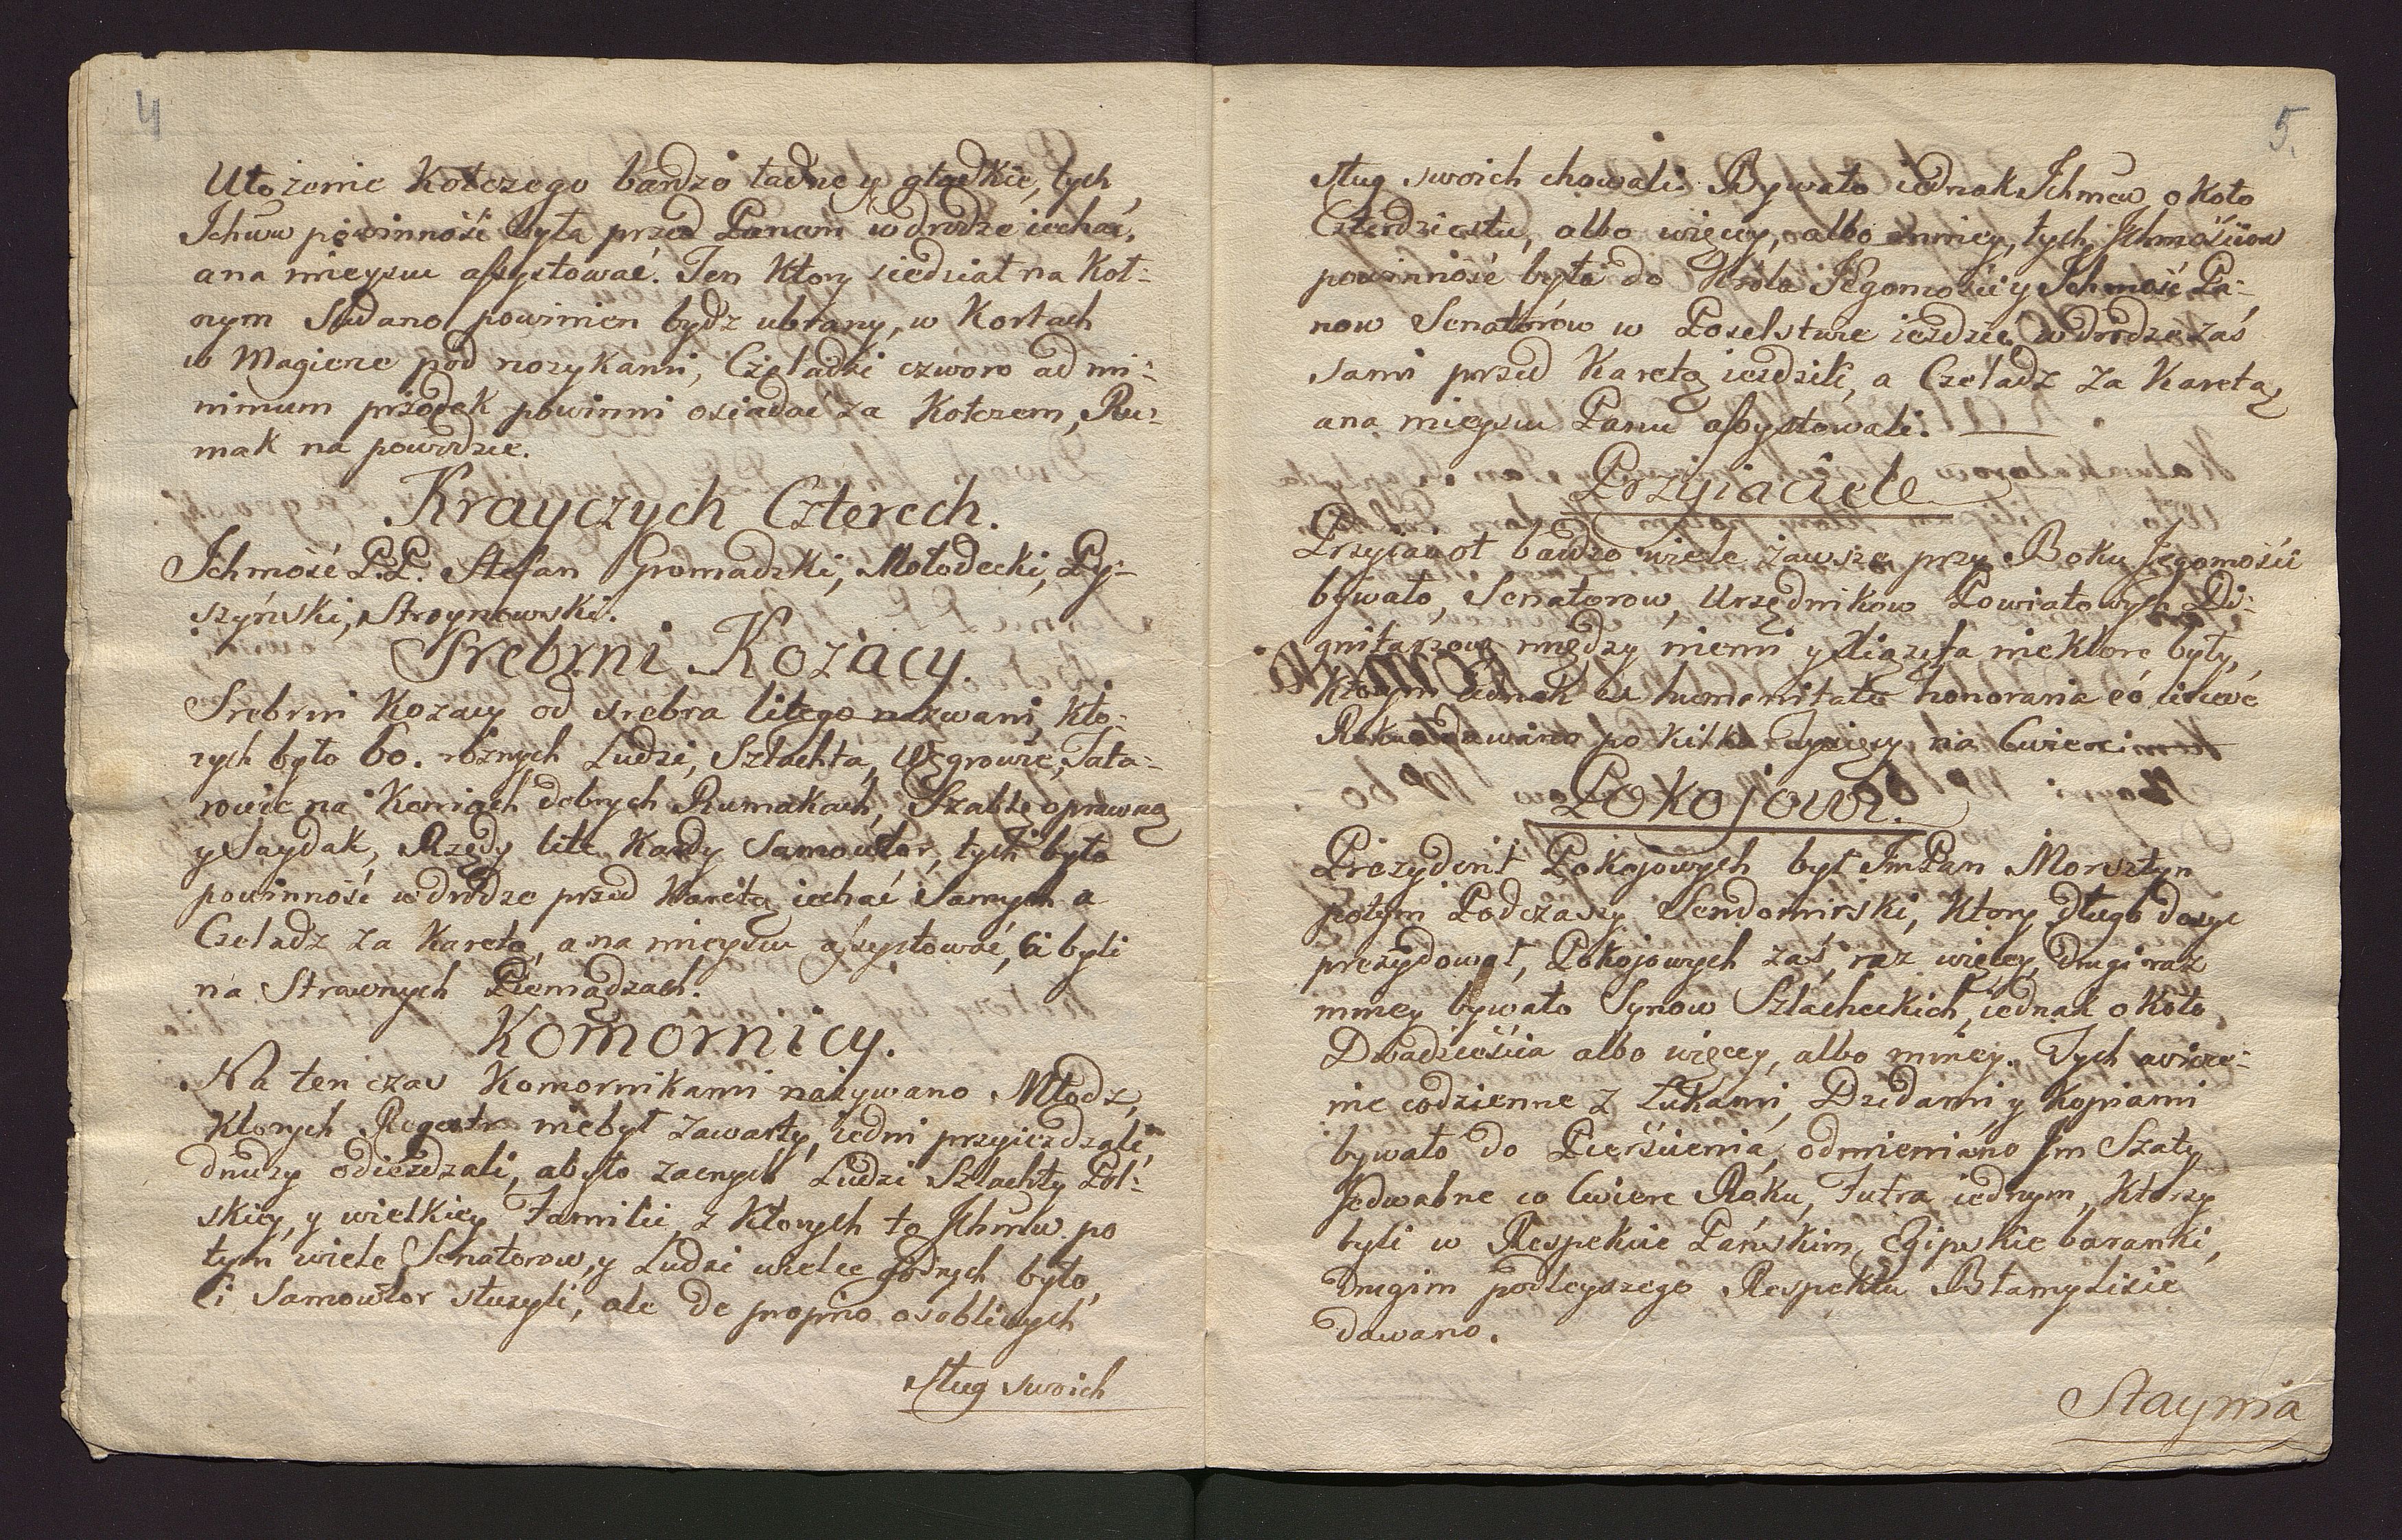 4
Ułożenie Kołczego bardzo ładne y gładkie, tych
Ichmw powinność była przed Panem w drodze iechać,
ana mieyscu assystować. Ten Ktory siedział na Koł-
nym Sudano powinien bydz ubrany, w Kortach
w Magierce pod nozykami, Czeladzi czworo ad mi-
nimum przodek powinni osiadać za Kołczem, Ru-
mak na powodzie.
Krayczych Czterech.
Ichmość P.P. Stefan Gromadzki, Mołodecki, Py-
szyński, Stroynowski.
Srebrni Kozacy.
Srebrni Kozacy od srebra litego nazwani, kto-
rych było 60. roznych Ludzi, Szlachta, Węgrowie, Tata-
rowie na Koniach dobrych Rumakach, Szable oprawną
y Saydak, Rzędy lite Kazdy Samowtor, tych było
powinność w drodze przed Karetą iechać Samych a
Czeladz za Karetą, a na mieyscu assystować, Ci byli
na Strawnych Pieniądzach.
Komornicy.
Na ten czas Komornikami nazywano Młodz,
ktorych Regestr niebył zawarty, iedni przyiezdzali,
druzy odiezdzali, abyło zacnych Ludzi Szlachty Pol-
skiey, y wielkiey Familii, z Ktorych to Ichmw po
tym wiele Senatorow, y Ludzi wielce godnych było,
Ci Samowtor służyli, ale de proprio osobliwych
sług swoich
5.
sług swoich chowali. Bywało iednak Ichmcw około
Czterdziestu, albo więcey, albo mniey, tych Ichmościow
powinność była do Krola Jegomości y Ichmość Pa-
now Senatorow w Poselstwie iezdzić, w drodze zaś
sami przed Karetą iezdzili, a Czeladz za Karetą
ana mieyscu Panu assystowali.
Przyiaciele
Przyiacioł bardzo wiele zawsze przy Boku Jegomości
bywało, Senatorow, Urzędnikow Powiatowych Di-
gnitarzow między niemi y Xiązęta niektore były,
Ktorym iednak ex humanitate honoraria co
Roku dawano po kilka Tysięcy na Cwierci
Pokojowi.
Prezydent Pokojowych był ImPan Morsztyn
potym Podczaszy Sendomirski, Ktory długo dosyc
prezydował, Pokojowych zaś, raz więcey, drugi raz
mniey bywało Synow Szlacheckich, iednak około
Dwadziescia albo więcey, albo mniey. Tych cwicze-
nie codzienne z Łukami, Dzidami, y Kopiami
bywało do Pierścienia, odmieniano Im Szaty
Jedwabne co Cwierc Roku, Futra iednym, Ktorzy
byli w Respekcie Pańskim, Egipskie baranki,
drugim podleyszego Respektu Błamy Lisie
dawano.
Staynia